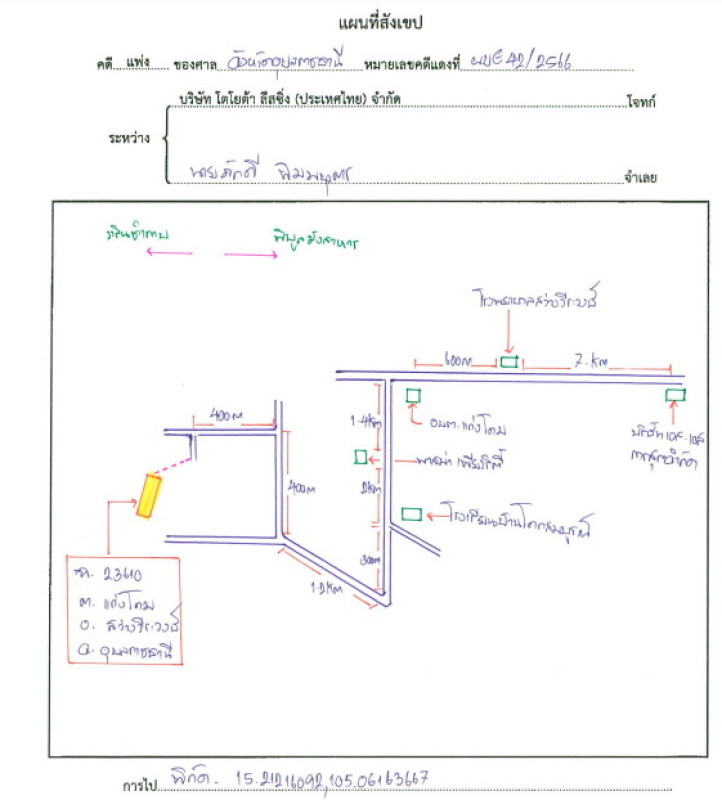 แผนที่สังเขป
คดี แพ่ง ของศาล จังหวัดอุบลราชธานี หมายเลขคดีแดงที่ ผบE 42/2566
บริษัท โตโยต้า ลีสซิ่ง (ประเทศไทย) จำกัด โจทก์
ระหว่าง
นายภักดี จำเลย
วารินชำราบ พิบูลมังสาหาร
โรงพยาบาลสว่างวีระวงศ์
600M 7 KM
400M 1.4KM อบต.แก่งโดม
400M 2KM
โรงเรียนบ้านโคกสมบูรณ์
300M
1.2KM
23610
ต. แก่งโดม
อ. สว่างวีระวงศ์
จ. อุบลราชธานี
การไป พิกัด. 15.21216092,105.06163667